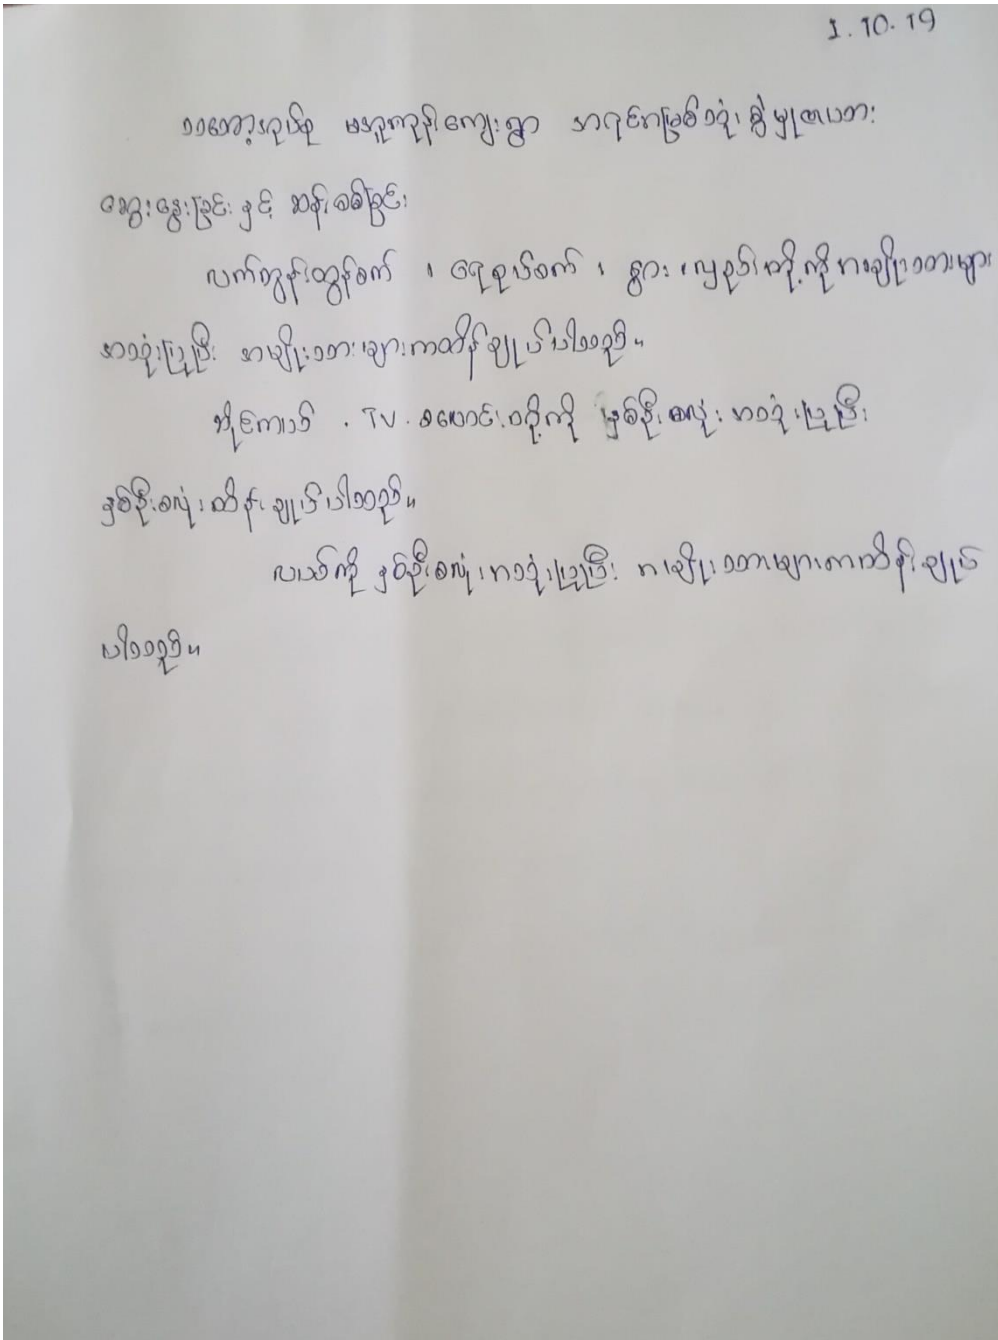 1.10.19
သာ့အုပ်စု မအူကုန်းကျေးရွာ အရင်းအမြစ်သုံးစွဲမှုဇယား
ဆွေးနွေးခြင်းနှင့် ဆန်းစစ်ခြင်း
လက်တွန်းထွန်စက် ၊ ရေစုပ်စက် ၊ နွား ၊ လှည်းတို့ကို အမျိုးသားများ
အသုံးပြုပြီး အမျိုးသားများကထိန်းချုပ်ပါသည်။
ဆိုင်ကယ် . TV . စလောင်း တို့ကို နှစ်ဦးစလုံး အသုံးပြုပြီး
နှစ်ဦးစလုံးထိန်းချုပ်ပါသည်။
လယ်ကို နှစ်ဦးစလုံးအသုံးပြုပြီး အမျိုးသားများကထိန်းချုပ်
ပါသည်။